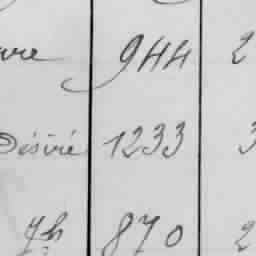 944 2
Désiré 1233 3
Jh 870 2